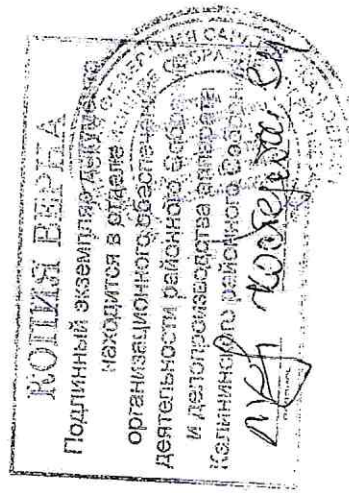 КОПИЯ ВЕРНА
Подлинный экземпляр документа
находится в отделе
организационного обеспечения
деятельности районного Собрания
и делопроизводства аппарата
Калининского районного Собрания